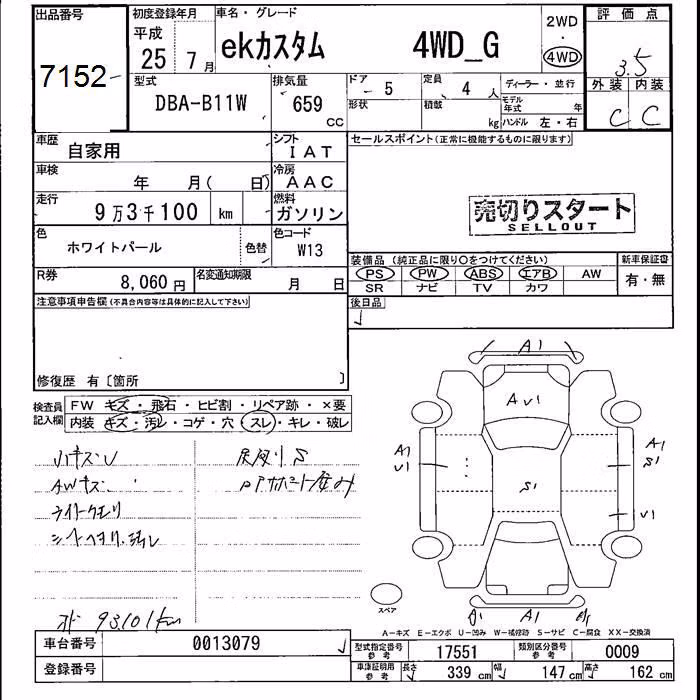 出品番号 初度登録年月 車名・グレード 評価点
7152 平成 25年 7月 ekカスタム 4WD_G 2WD ・ 4WD 3.5
型式 DBA-B11W 排気量 659 CC ドア - 5 定員 4 人 ディーラー・並行 外装 内装
形状 積載 kg モデル年式 年 ハンドル 左・右 C C
車歴 自家用 シフト IAT セールスポイント(正常に機能するものに限ります)
車検 年 月( 日) 冷房 AAC
走行 9万3千100 km 燃料 ガソリン 売切りスタート
SELLOUT
色 ホワイトパール 色替 色コード W13
装備品 (純正品に限り○をつけてください) 新車保証書
R券 8,060円 名変通知期限 月 日 PS PW ABS エアB AW 有・無
SR ナビ TV カワ
注意事項申告欄(不具合内容等は具体的に記入して下さい) 後日品
修復歴 有〔箇所 〕
検査員記入欄 FW キズ・飛石・ヒビ割・リペア跡・×要
内装 キズ・汚レ・コゲ・穴・スレ・キレ・破レ
小キズU
AWキズ
ライトクモリ
A1
AU1
A1 U1
A1 S1
S1
U1
A1
スペア
93101km
A-キズ E-エクボ U-凹み W-補修跡 S-サビ C-腐食 XX-交換済
車台番号 0013079 型式指定番号 参考 17551 類別区分番号 参考 0009
登録番号 車庫証明用 参考 長さ 339 cm 幅 147 cm 高さ 162 cm